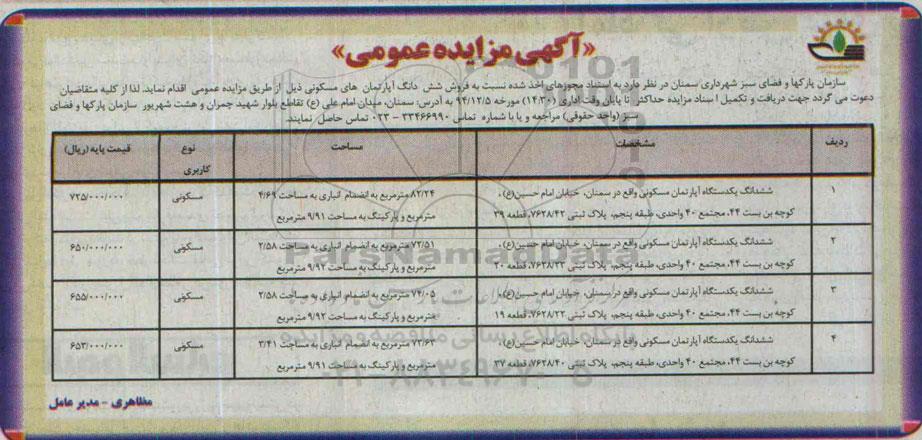 «آگهی مزایده عمومی»
سازمان پارکها و فضای سبز شهرداری سمنان در نظر دارد به استناد مجوزهای اخذ شده نسبت به فروش شش دانگ آپارتمان های مسکونی ذیل از طریق مزایده عمومی اقدام نماید. لذا از کلیه متقاضیان
دعوت می گردد جهت دریافت و تکمیل اسناد مزایده حداکثر تا پایان وقت اداری (۱۴:۳۰) مورخه ۹۴/۱۲/۵ به آدرس: سمنان، میدان امام علی (ع) تقاطع بلوار شهید چمران و هشت شهریور سازمان پارکها و فضای
سبز (واحد حقوقی) مراجعه و یا با شماره تماس ۳۳۴۶۶۹۹۰ - ۰۲۳ تماس حاصل نمایند.
ردیف مشخصات مساحت نوع کاربری قیمت پایه (ریال)
۱ ششدانگ یکدستگاه آپارتمان مسکونی واقع در سمنان، خیابان امام حسین(ع)، ۸۲/۲۴ مترمربع به انضمام انباری به مساحت ۴/۶۹ مسکونی ۷۲۵/۰۰۰/۰۰۰
کوچه بن بست ۴۴، مجتمع ۴۰ واحدی، طبقه پنجم، پلاک ثبتی ۷۶۳۸/۴۲، قطعه ۳۹ مترمربع و پارکینگ به مساحت ۹/۹۱ مترمربع
۲ ششدانگ یکدستگاه آپارتمان مسکونی واقع در سمنان، خیابان امام حسین(ع)، ۷۳/۵۱ مترمربع به انضمام انباری به مساحت ۲/۵۸ مسکونی ۶۵۰/۰۰۰/۰۰۰
کوچه بن بست ۴۴، مجتمع ۴۰ واحدی، طبقه پنجم، پلاک ثبتی ۷۶۳۸/۲۳، قطعه ۲۰ مترمربع و پارکینگ به مساحت ۹/۹۲ مترمربع
۳ ششدانگ یکدستگاه آپارتمان مسکونی واقع در سمنان، خیابان امام حسین(ع)، ۷۴/۰۵ مترمربع به انضمام انباری به مساحت ۲/۵۸ مسکونی ۶۵۵/۰۰۰/۰۰۰
کوچه بن بست ۴۴، مجتمع ۴۰ واحدی، طبقه پنجم، پلاک ثبتی ۷۶۳۸/۲۲، قطعه ۱۹ مترمربع و پارکینگ به مساحت ۹/۹۲ مترمربع
۴ ششدانگ یکدستگاه آپارتمان مسکونی واقع در سمنان، خیابان امام حسین(ع)، ۷۳/۶۲ مترمربع به انضمام انباری به مساحت ۳/۴۱ مسکونی ۶۵۳/۰۰۰/۰۰۰
کوچه بن بست ۴۴، مجتمع ۴۰ واحدی، طبقه پنجم، پلاک ثبتی ۷۶۳۸/۴۰، قطعه ۳۷ مترمربع و پارکینگ به مساحت ۹/۹۱ مترمربع
مظاهری - مدیر عامل
ParsNamadData